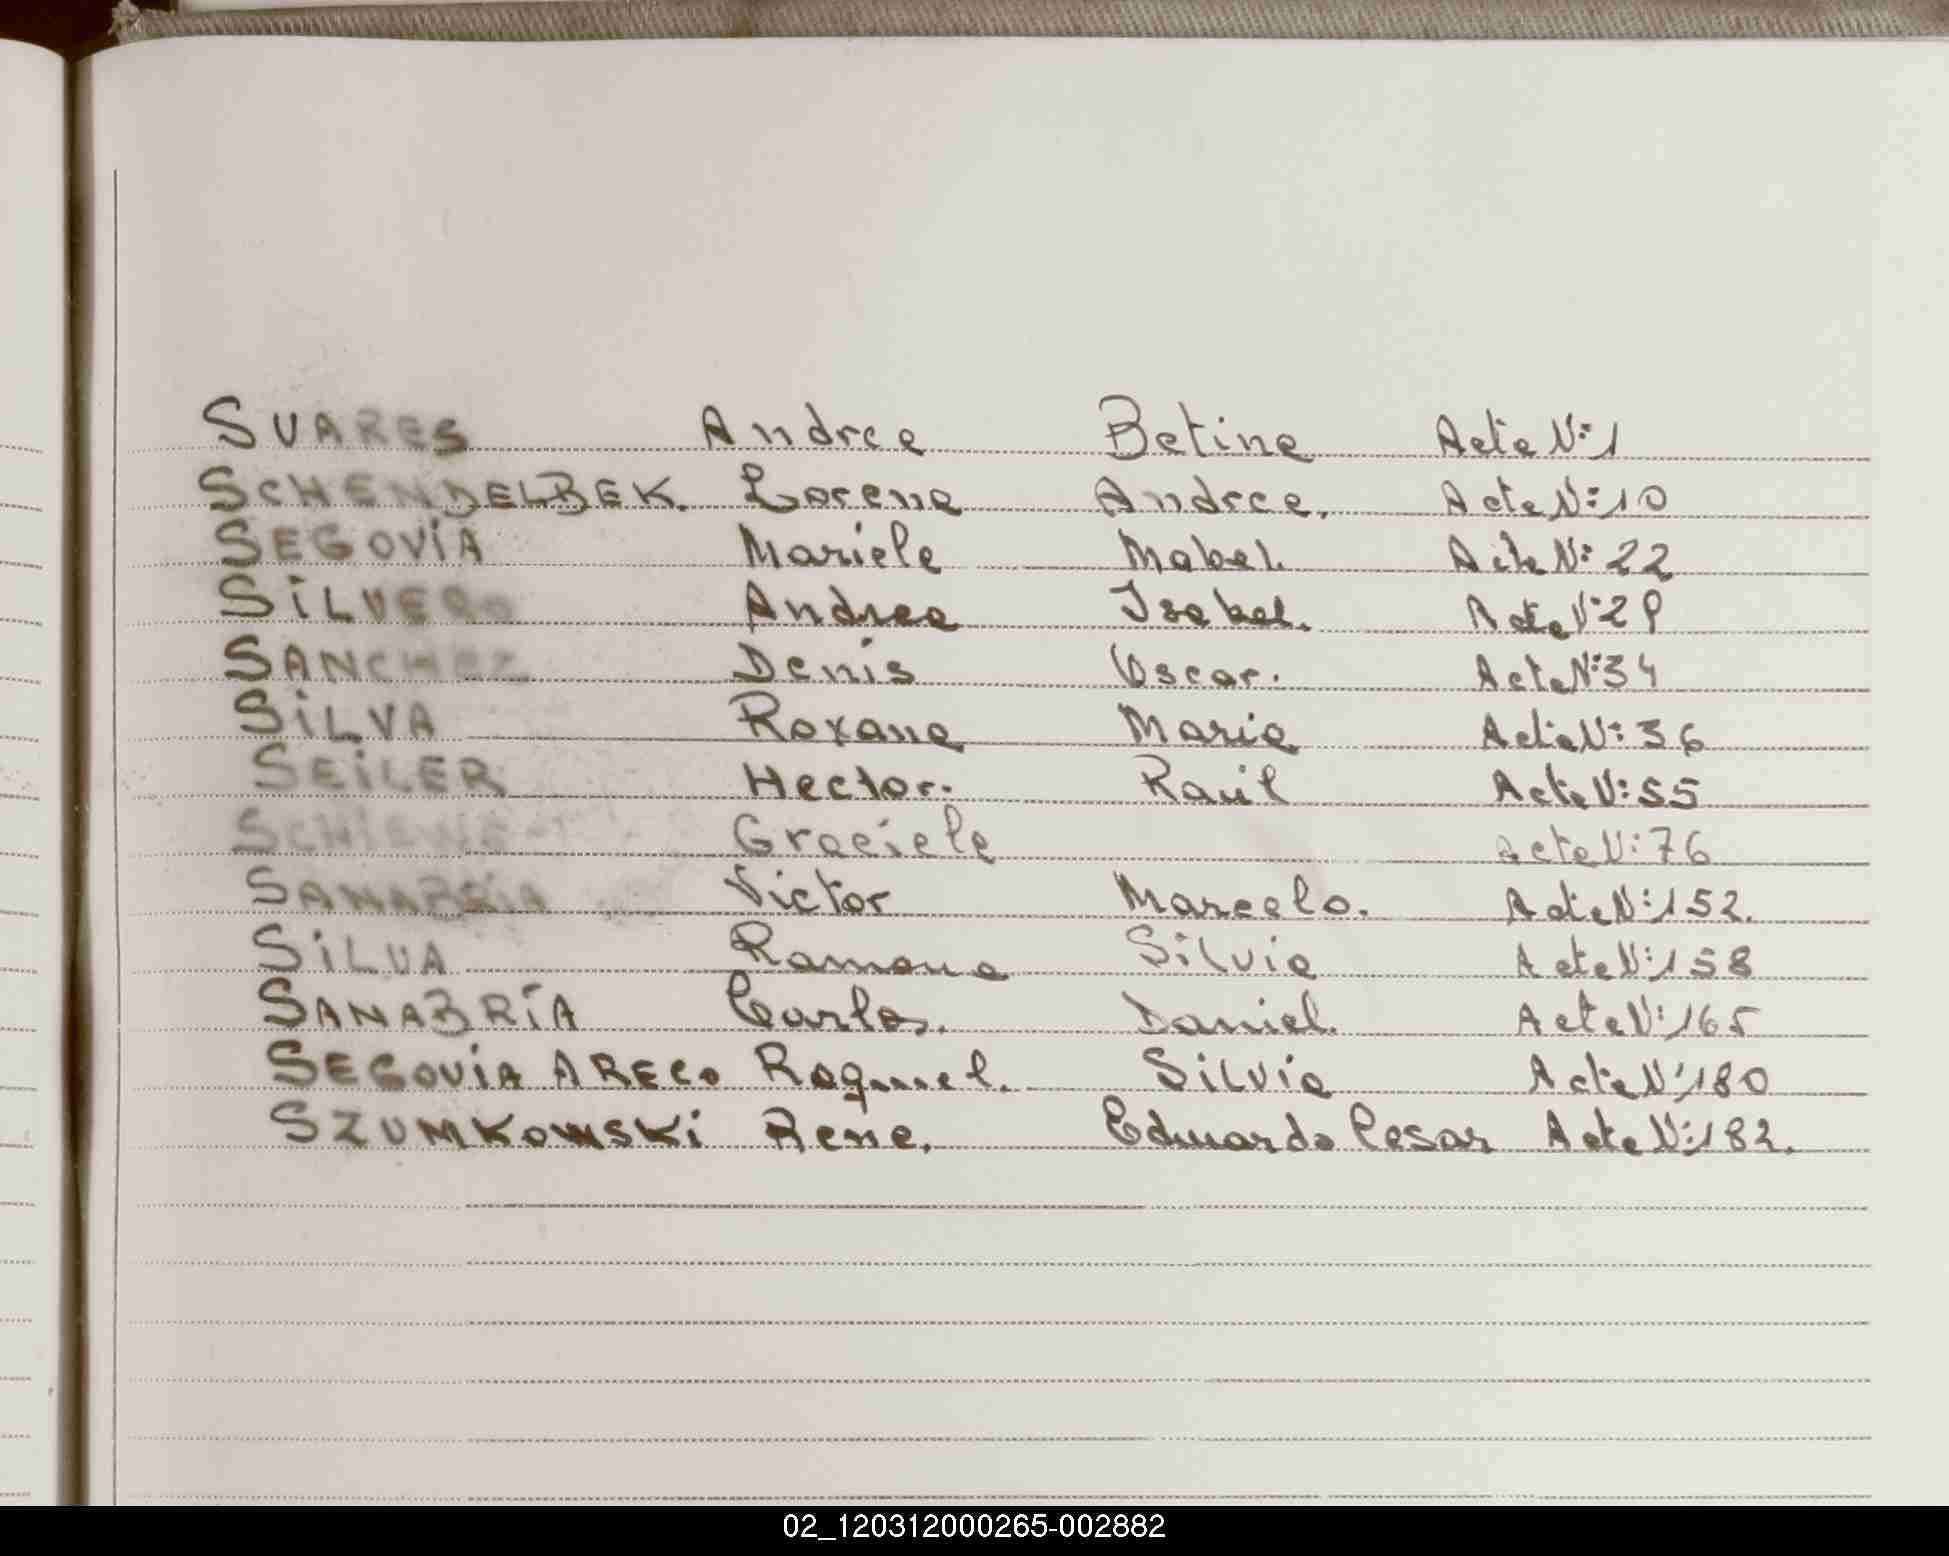 SUARES Andrea Betina Acta Nº 1
SCHENDELBEK. Lorena Andrea. Acta Nº 10
SEGOVIA Mariela Mabel. Acta Nº 22
SILVERO Andrea Isabel. Acta Nº 29
SANCHEZ Denis Oscar. Acta Nº 34
SILVA Roxana Maria Acta Nº 36
SEILER Hector. Raúl Acta Nº 55
Graciela Acta Nº 76
SANABRIA Victor Marcelo. Acta Nº 152.
SILVA Ramona Silvia Acta Nº 158
SANABRÍA Carlos. Daniel. Acta Nº 165
SEGOVIA ARECO Raquel. Silvia Acta Nº 180
SZUMKOWSKI Rene. Eduardo Cesar Acta Nº 182.
02_120312000265-002882